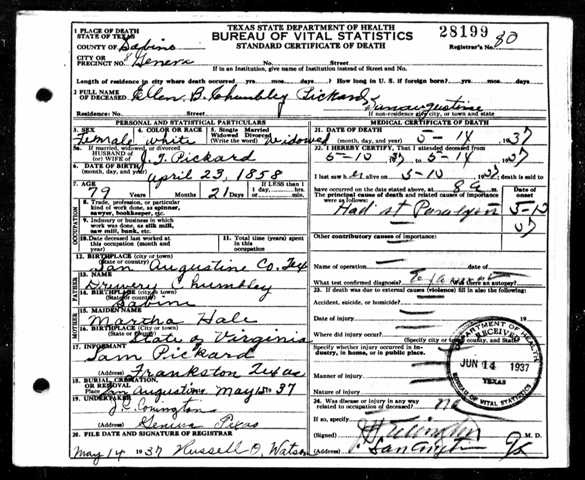 TEXAS STATE DEPARTMENT OF HEALTH
BUREAU OF VITAL STATISTICS
STANDARD CERTIFICATE OF DEATH
28199
Registrar's No. 30
1 PLACE OF DEATH
STATE OF TEXAS
COUNTY OF Sabine
CITY OR PRECINCT Geneva No. Street
If in an Institution, give name of Institution instead of Street and No.
Length of residence in city where death occurred yrs. mos. days. How long in U. S. if foreign born? yrs. mos. days.
2 FULL NAME OF DECEASED Ellen B. Chumbley Pickard
Residence: No. Street San Augustine
If non-residence city or town and state
PERSONAL AND STATISTICAL PARTICULARS
3. SEX Female
4. COLOR OR RACE white
5. Single Married Widowed Divorced (Write the word) Widowed
5a. If married, widowed, or divorced
HUSBAND of
(or) WIFE of J. T. Pickard
6. DATE OF BIRTH
(month, day, and year) April 23, 1858
7. AGE 79 Years Months 21 Days
If LESS than 1 day, hrs. min.
OCCUPATION
8. Trade, profession, or particular
kind of work done, as spinner,
sawyer, bookkeeper, etc.
9. Industry or business in which
work was done, as silk mill,
saw mill, bank, etc.
10. Date deceased last worked at
this occupation (month and
year)
11. Total time (years) spent in
this occupation
12. BIRTHPLACE (city or town)
(State or country) San Augustine Co. Tex
FATHER
13. NAME Drewery Chumbley
14. BIRTHPLACE (city or town)
(State or country) Sabine
MOTHER
15. MAIDEN NAME Martha Hale
16. BIRTHPLACE (city or town)
(State or country) State of Virginia
17. INFORMANT Sam Pickard
(Address) Frankston Texas
18. BURIAL, CREMATION, OR REMOVAL
Place San Augustine May 15th 37
19. UNDERTAKER J. C. Conington
(Address) Geneva Texas
20. FILE DATE AND SIGNATURE OF REGISTRAR
May 14 1937 Russell O. Watson
MEDICAL CERTIFICATE OF DEATH
21. DATE OF DEATH
(month, day, and year) 5-14, 1937
22. I HEREBY CERTIFY, That I attended deceased from
5-10 1937 to 5-14 1937
I last saw her alive on 5-10 1937 death is said to
have occurred on the date stated above, at 8 a m.
The principal cause of death and related causes of importance were as follows:
Date of onset
Had 1st Paralysis 5-10
37
Other contributory causes of importance:
Name of operation date of
What test confirmed diagnosis? Was there an autopsy?
23. If death was due to external causes (violence) fill in also the following:
Accident, suicide, or homicide?
Date of injury 19
Where did injury occur?
(Specify city or town, county, and State)
Specify whether injury occurred in Industry, in home, or in public place.
Manner of injury
Nature of injury
24. Was disease or injury in any way
related to occupation of deceased? no
If so, specify
(Signed) M. D.
TEXAS DEPARTMENT OF HEALTH
RECEIVED
JUN 14 1937
TEXAS
BUREAU OF VITAL STATISTICS